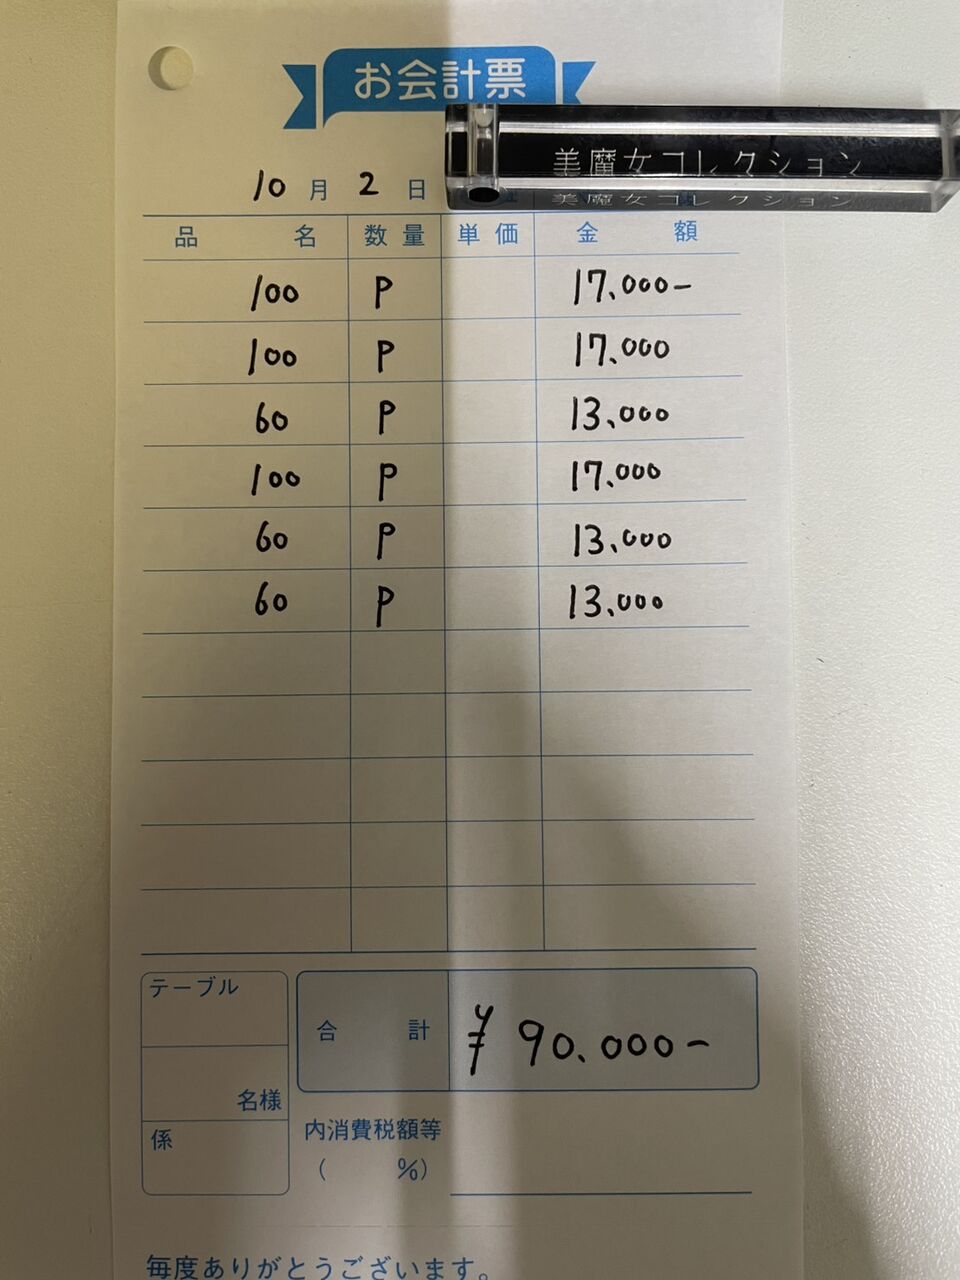 お会計票
美魔女コレクション
美魔女コレクション
10月2日
品名 数量 単価 金額
100 P 17.000-
100 P 17.000
60 P 13.000
100 P 17.000
60 P 13.000
60 P 13.000
テーブル
名様
係
合計 ¥90.000-
内消費税額等
( %)
毎度ありがとうございます。